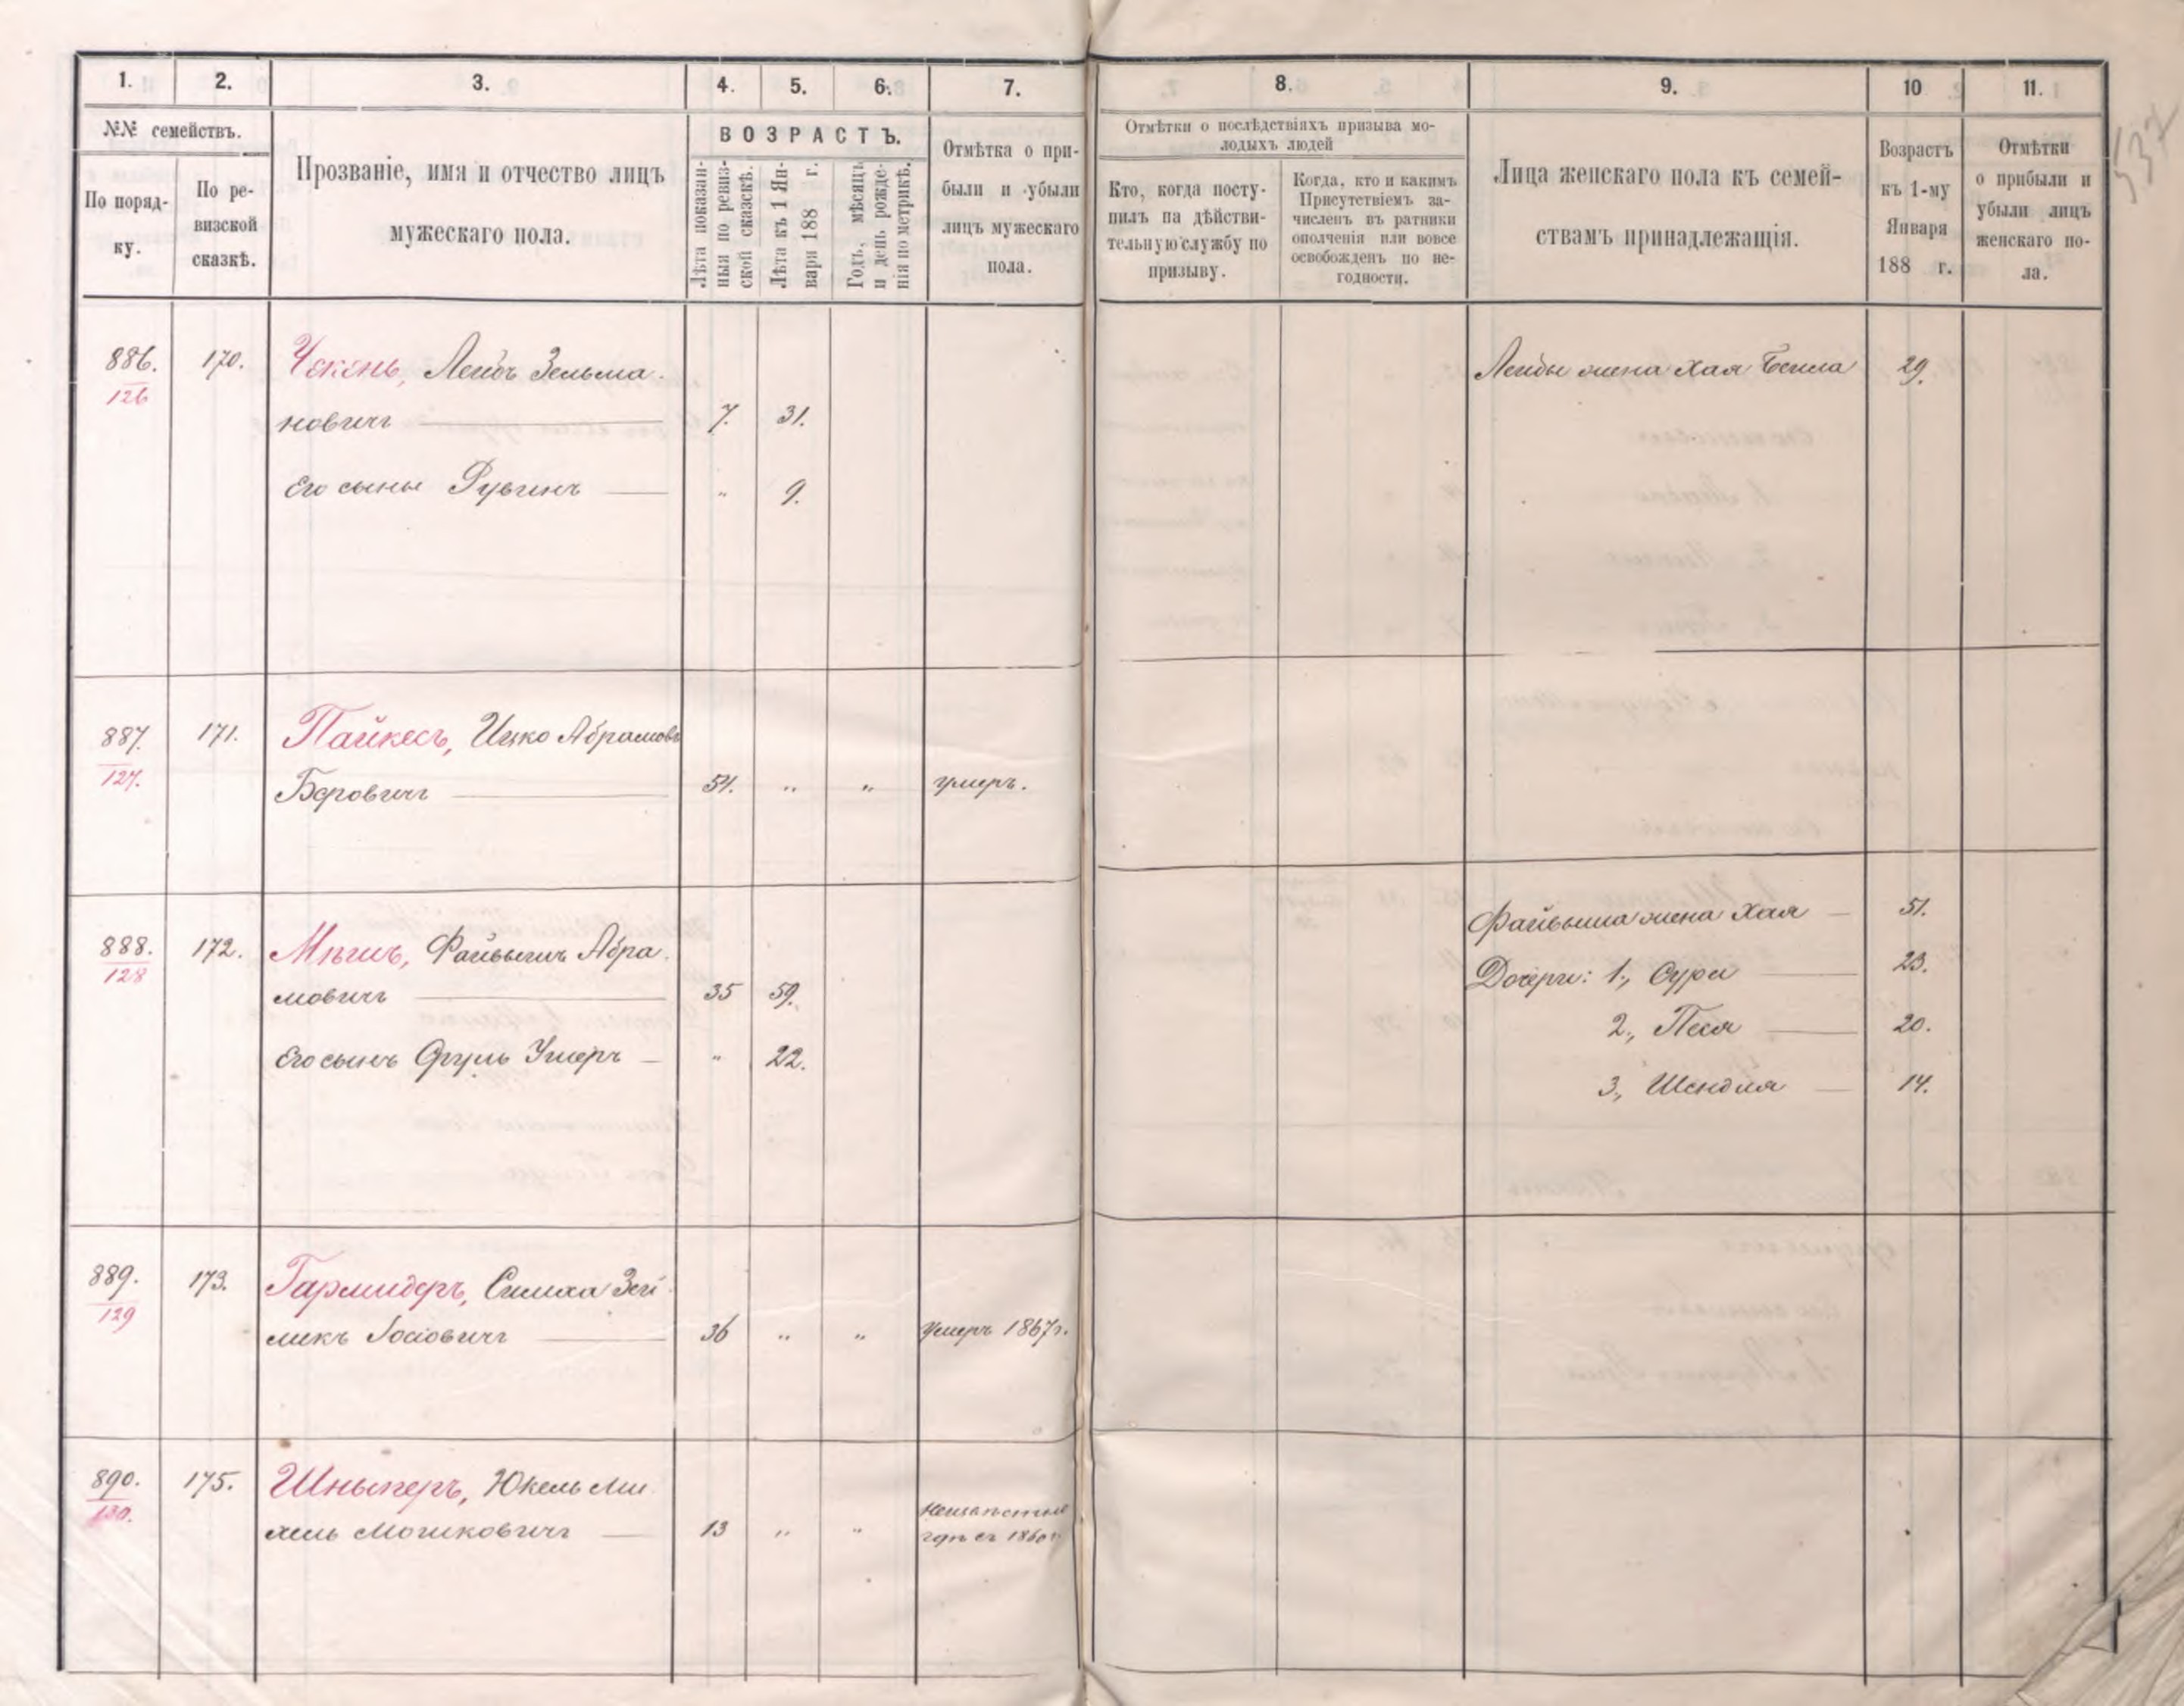 1. 2. 3. 4. 5. 6. 7. 8. 9. 10 11.
№№ семействъ.
По поряд-
ку.
По ре-
визской
сказкѣ.
Прозваніе, имя и отчество лицъ
мужескаго пола.
ВОЗРАСТЪ.
Лѣта показан-
ныя по ревиз-
ской сказскѣ.
Лѣта къ 1 Ян-
варя 188 г.
Годъ, мѣсяцъ
и день рожде-
нія по метрикѣ.
Отмѣтка о при-
были и убыли
лицъ мужескаго
пола.
Отмѣтки о послѣдствіяхъ призыва мо-
лодыхъ людей
Кто, когда посту-
пилъ на дѣйстви-
тельную службу по
призыву.
Когда, кто и какимъ
Присутствіемъ за-
численъ въ ратники
ополченія или вовсе
освобожденъ по не-
годности.
Лица женскаго пола къ семей-
ствамъ принадлежащія.
Возрастъ
къ 1-му
Января
188 г.
Отмѣтки
о прибыли и
убыли лицъ
женскаго по-
ла.
537
886. 170. Чекень, Лейбъ Зельма- Лейбы жена Хая Бейла 29.
126
новичъ 7. 31.
Его сыны Рувинъ " 9.
887. 171. Пайкесъ, Ицко Абрамовъ
127.
Беровичъ 54. " " умеръ.
888. 172. Мѣгиъ, Файвишъ Абра- Файвыша жена Хая 51.
128
мовичъ 35 59. Дочери: 1., Сура 23.
2., Песя 20.
Его сынъ Сруль Ушеръ " 22.
3., Шендля 14.
889. 173. Гармидеръ, Симха Зей-
129
ликъ Іосіовичъ 36 " " Умеръ 1867 г.
890. 175. Шныперъ, Юкель Ми-
130.
хель Мошковичъ 13 " " Неизвѣстно
гдѣ съ 1860 г.